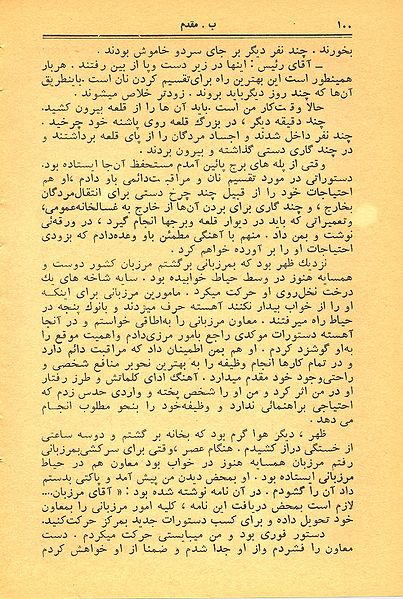 ۱۰۰
ب . مقدم
بخورند . چند نفر دیگر بر جای سردو خاموش بودند .
ــ آقای رئیس : اینها در زیر دست وپا از بین رفتند . هربار
همینطور است این بهترین راه برای تقسیم کردن نان است .باینطریق
آن‌ها که چند روز دیگر باید بروند . زودتر خلاص میشوند .
حالا وقت کار من است .باید آن ها را از قلعه بیرون کشید.
چند دقیقه دیگر ، در بزرگ قلعه روی پاشنه خود چرخید .
چند نفر داخل شدند و اجساد مردگان را از پای قلعه برداشتند و
در چند گاری دستی گذاشته و بیرون بردند .
وقتی از پله های برج پائین آمدم مستحفظ آن‌جا ایستاده بود.
دستوراتی در مورد تقسیم نان و مراقبت دائمی باو دادم ،او هم
احتیاجات خود را از قبیل چند چرخ دستی برای انتقال مردگان
بخارج ، و چند گاری برای بردن آن‌ها از خارج به غسالخانه عمومی،
وتعمیراتی که باید در دیوار قلعه وبرجها انجام گیرد ، در ورقه‌ئی
نوشت و بمن داد . منهم با آهنگی مطمئن باو وعده‌دادم که بزودی
احتیاجات او را بر آورده خواهم کرد .
نزدیک ظهر بود که بمرزبانی برگشتم مرزبان کشور دوست و
همسایه هنوز در وسط حیاط خوابیده بود . سایه شاخه های یك
درخت نخل روی او حرکت میکرد . مامورین مرزبانی برای اینکه
او را از خواب بیدار نکنند آهسته حرف میزدند و بانوك پنجه در
حیاط راه میرفتند . معاون مرزبانی را به‌اطاقی خواستم و در آنجا
آهسته دستورات موکدی راجع بامور مرزی‌دادم واهمیت موقع را
به‌او گوشزد کردم . او هم بمن اطمینان داد که مراقبت دائم دارد
و در تمام کارها انجام وظیفه را به بهترین نحوبر منافع شخصی و
راحتی‌وجود خود مقدم میدارد . آهنگ ادای کلماتش و طرز رفتار
او در من اثر کرد و من او را شخص پخته و واردی حدس زدم که
احتیاجی براهنمائی ندارد و وظیفه‌خود را بنحو مطلوب انجام
می دهد .
ظهر ، دیگر هوا گرم بود که بخانه بر گشتم و دوسه ساعتی
از خستگی درازکشیدم . هنگام عصر ،وقتی برای سرکشی‌بمرزبانی
رفتم مرزبان همسایه هنوز در خواب بود معاون هم در حیاط
مرزبانی ایستاده بود . او بمحض دیدن من پیش آمد و پاکتی بدستم
داد آن را گشودم . در آن نامه نوشته شده بود : « آقای مرزبان....
لازم است بمحض دریافت این نامه ، کلیه امور مرزبانی را بمعاون
خود تحویل داده و برای کسب دستورات جدید بمرکز حرکت‌کنید.
دستور فوری بود و من میبایستی حرکت میکردم . دست
معاون را فشردم واز او جدا شدم و ضمنا از او خواهش کردم